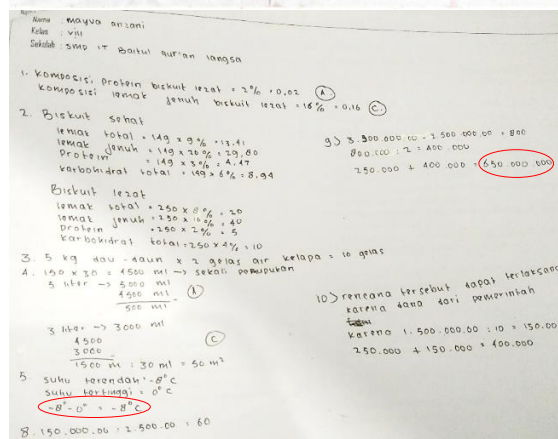 Nama : mayva anzani
Kelas : VIII
Sekolah : SMP IT Baitul Qur'an langsa
1. Komposisi protein biskuit lezat = 2% = 0,02 (A)
Komposisi lemak jenuh biskuit lezat = 16% = 0,16 (C)
2. Biskuit sehat
lemak total = 149 x 9% = 13.41
lemak jenuh = 149 x 20% = 29,80
Protein = 149 x 3% = 4.47
karbohidrat total = 149 x 6% = 8,94
Biskuit lezat
lemak total = 250 x 8% = 20
lemak jenuh = 250 x 16% = 40
protein = 250 x 2% = 5
karbohidrat total = 250 x 4% = 10
3. 5 kg dau-daun x 2 gelas air kelapa = 10 gelas
4. 150 x 30 = 4500 ml → sekali pemupukan
5 liter → 5000 ml
4500 ml
500 ml
(A)
3 liter → 3000 ml
4.500
3000
1500 m : 30 ml = 50 m²
(C)
5. suhu terendah = -8°C
suhu tertinggi = 0°C
-8° - 0° = -8°C
8. 150.000.00 : 2.500.00 = 60
9) 3.300.000.00 - 2.500.000.00 = 800
800.000 : 2 = 400.000
250.000 + 400.000 = 650.000.000
10) rencana tersebut dapat terlaksana
karena dana dari pemerintah
karena 1.500.000.00 : 10 = 150.00
250.000 + 150.000 = 400.000